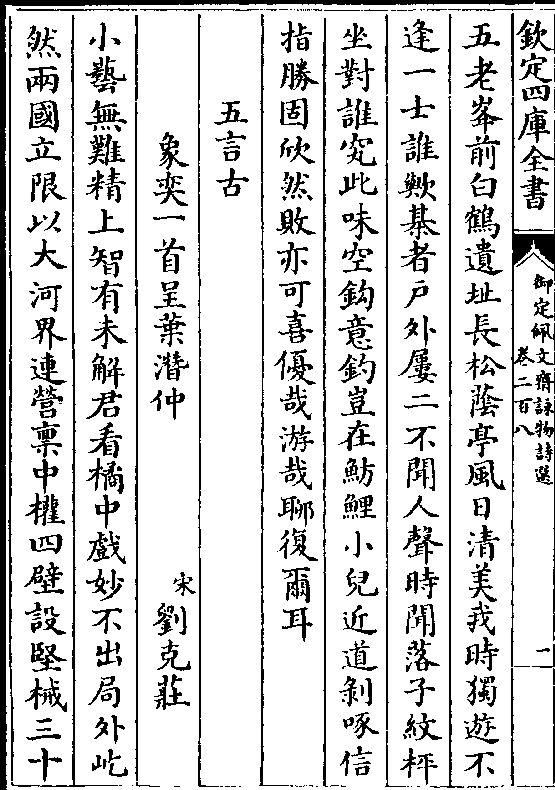 欽定四庫全書
御定佩文齋詠物詩選
卷二百八
二
五老峯前白鶴遺址長松蔭亭風日清美我時獨遊不
逢一士誰歟棊者戶外屨二不聞人聲時聞落子紋枰
坐對誰究此味空鈎意釣豈在魴鯉小兒近道剝啄信
指勝固欣然敗亦可喜優哉游哉聊復爾耳
五言古
象奕一首呈葉潛仲
宋劉克莊
小藝無難精上智有未解君看橘中戲妙不出局外屹
然兩國立限以大河界連營稟中權四壁設堅械三十